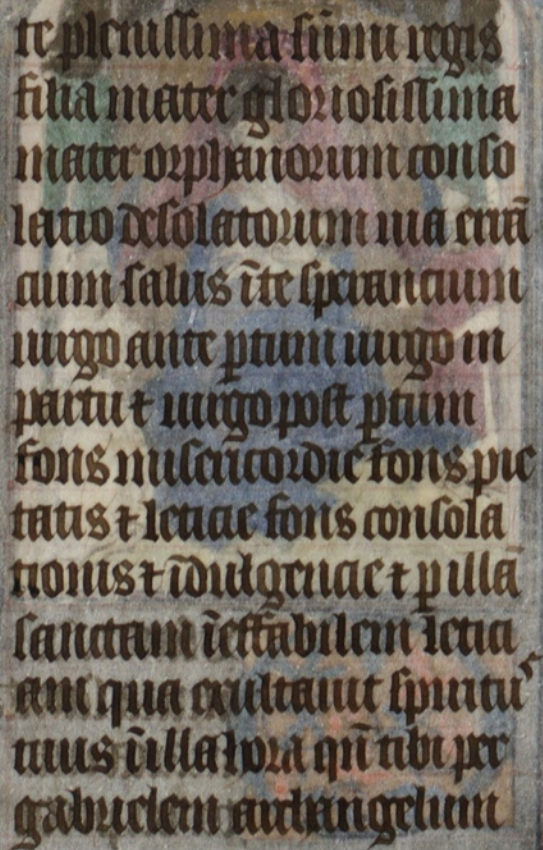 te plenissima sūmi regis
filia mater gloriosissima
mater orphanorum conso
latio desolatorum uia errā
cium salus īte sperancium
uirgo ante ꝑtum uirgo in
partu ⁊ uirgo post ꝑtum
fons misericordie fons pie
tatis ⁊ leticie fons consola
tionis ⁊ īdulgencie ⁊ ꝑ illā
sanctam īeffabilem letici
am qua exultauit spiritus
tuus ī illa hora qn̄ tibi per
gabrielem archangelum